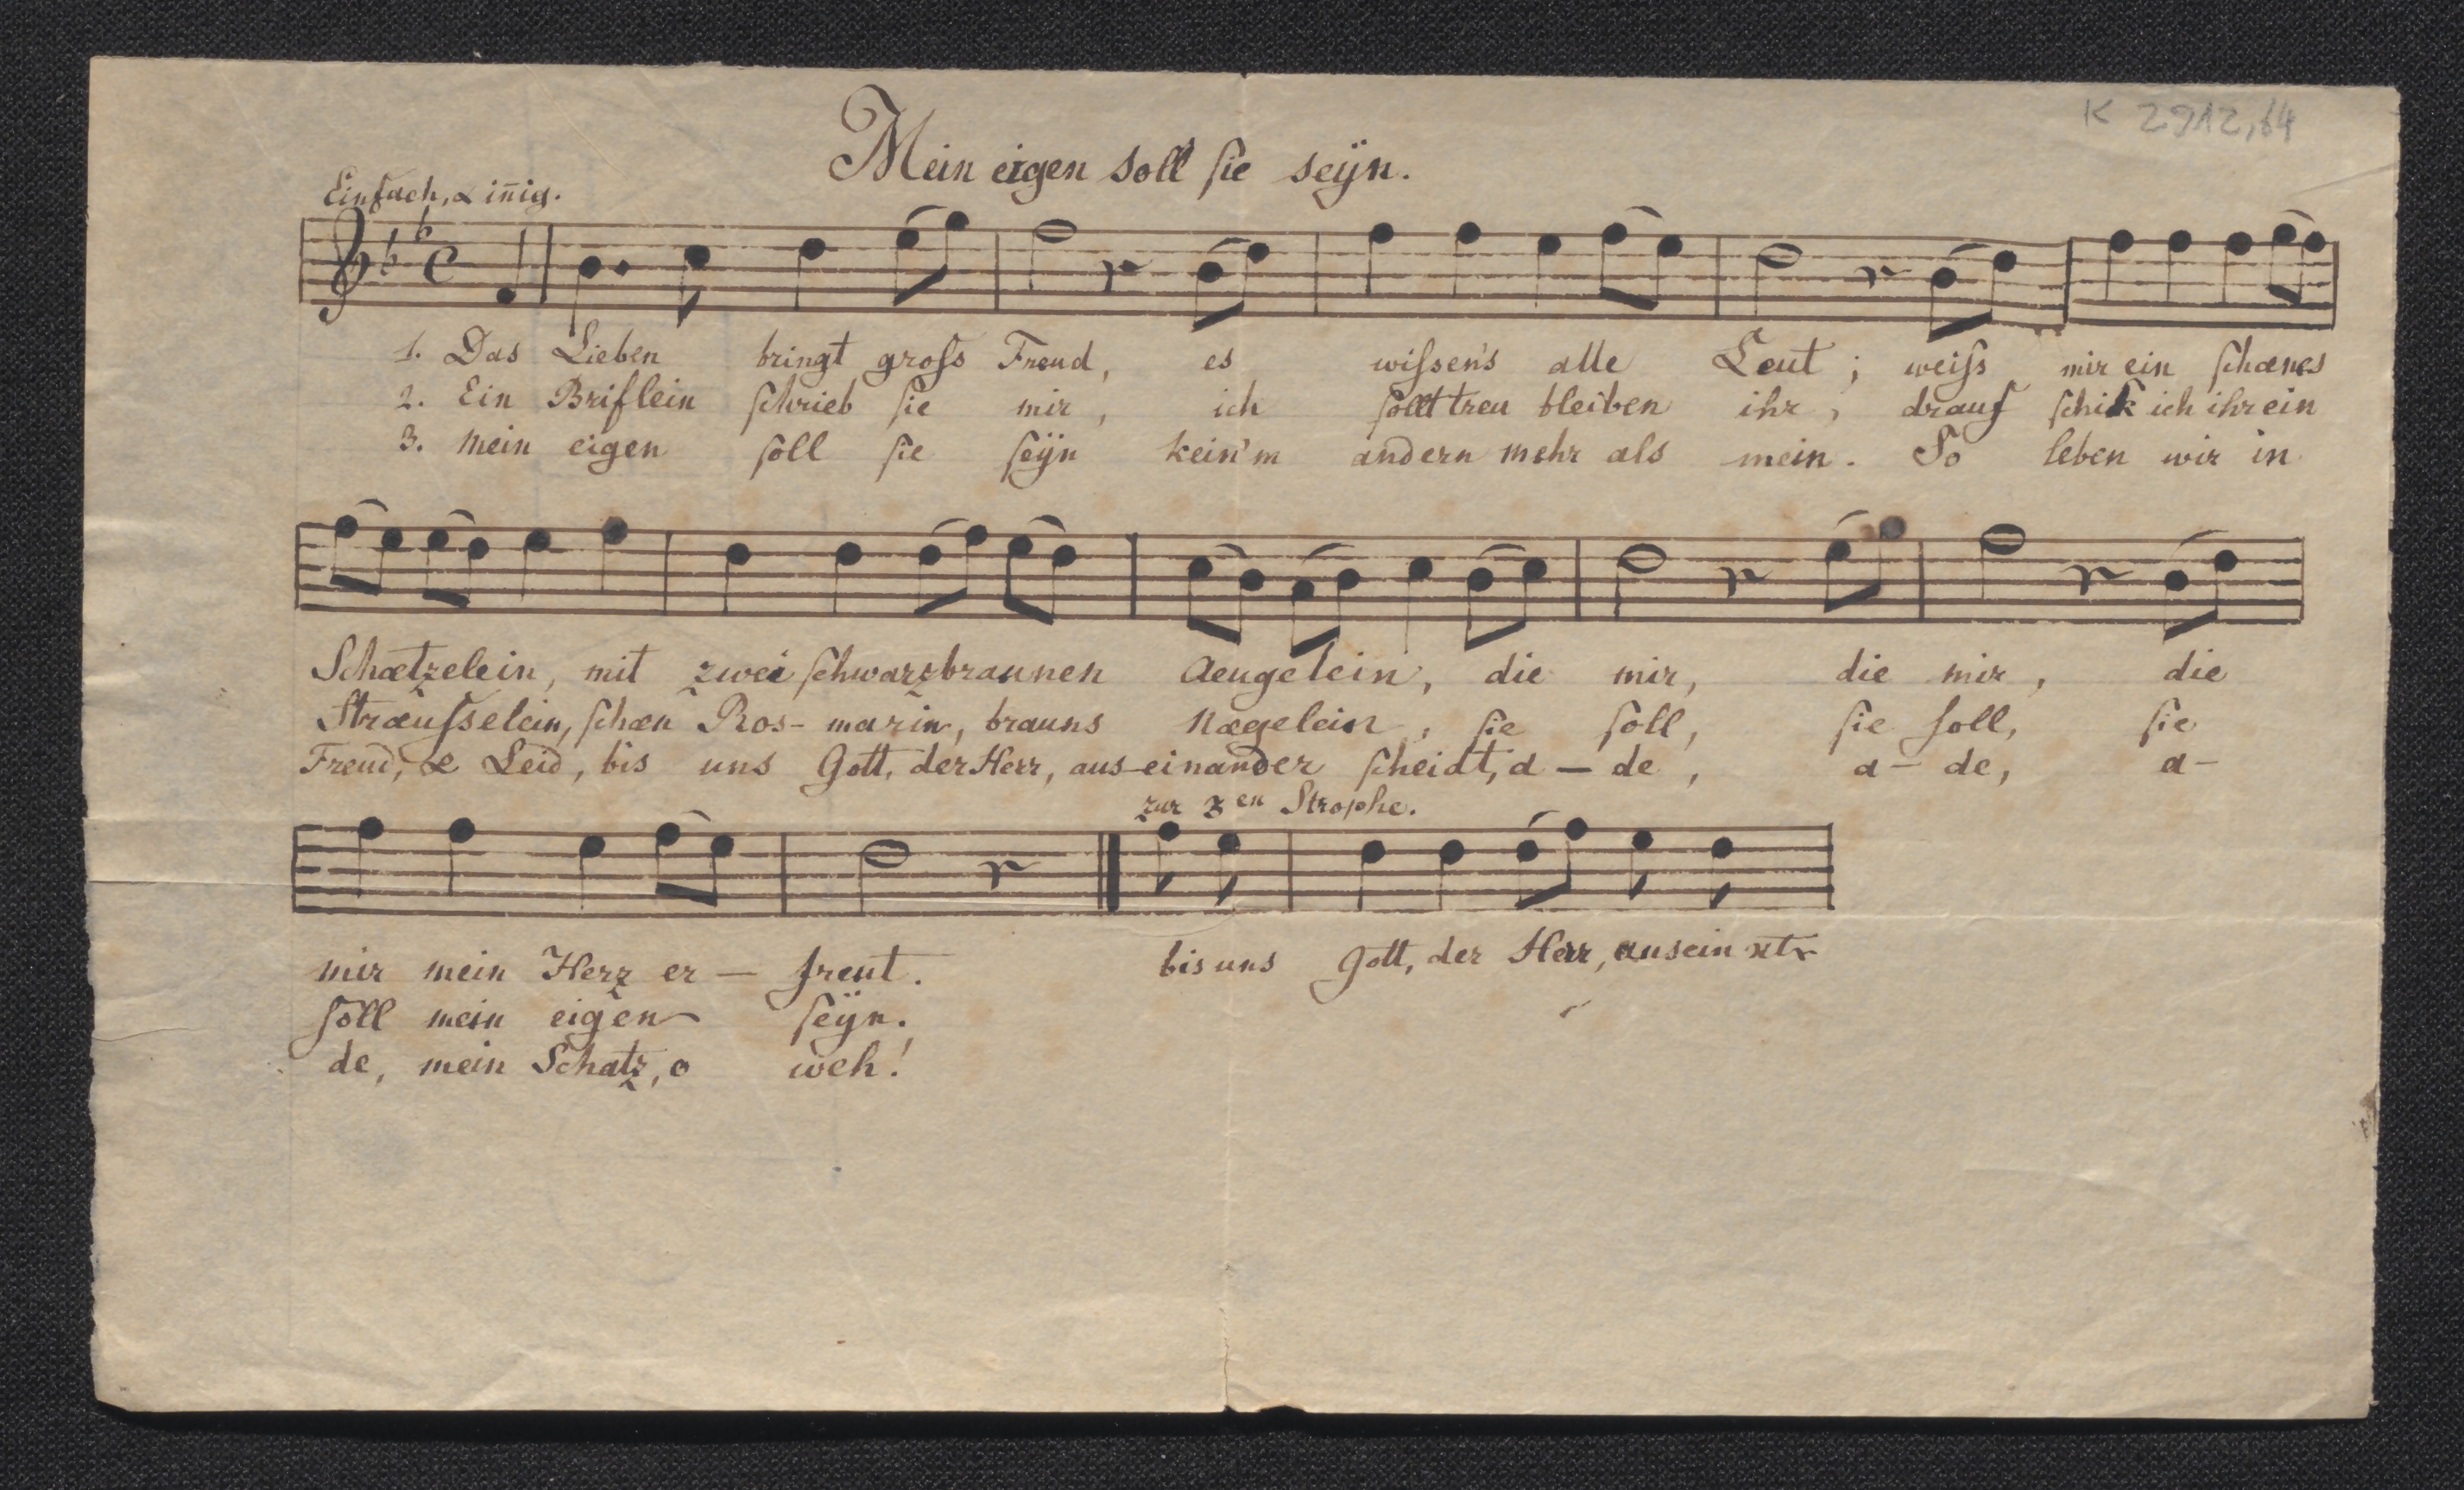 K 2912,64
Mein eigen soll ſie seÿn.
Einfach, & in̄ig.
1. Das Lieben bringt groſs Freud, es wiſsen's alle Leut; weiſs mir ein ſchœnes
2. Ein Briflein ſchrieb ſie mir, ich ſollt treu bleiben ihr, drauf ſchik ich ihr ein
3. Mein eigen ſoll ſie ſeÿn kein'm andern mehr als mein. So leben wir in
Schœtzelein, mit zwei ſchwarzbraunen Aeugelein, die mir, die mir, die
Stræuſselein, ſchœn Ros- marin, brauns Nægelein, ſie ſoll, ſie ſoll, ſie
Freud, & Leid, bis uns Gott, der Herr, aus-einander ſcheidt, a – de, a – de, a-
zur 3en Strophe.
mir mein Herz er – freut. bis uns Gott, der Herr, ausein
ſoll mein eigen ſeÿn.
de, mein Schatz, o weh!